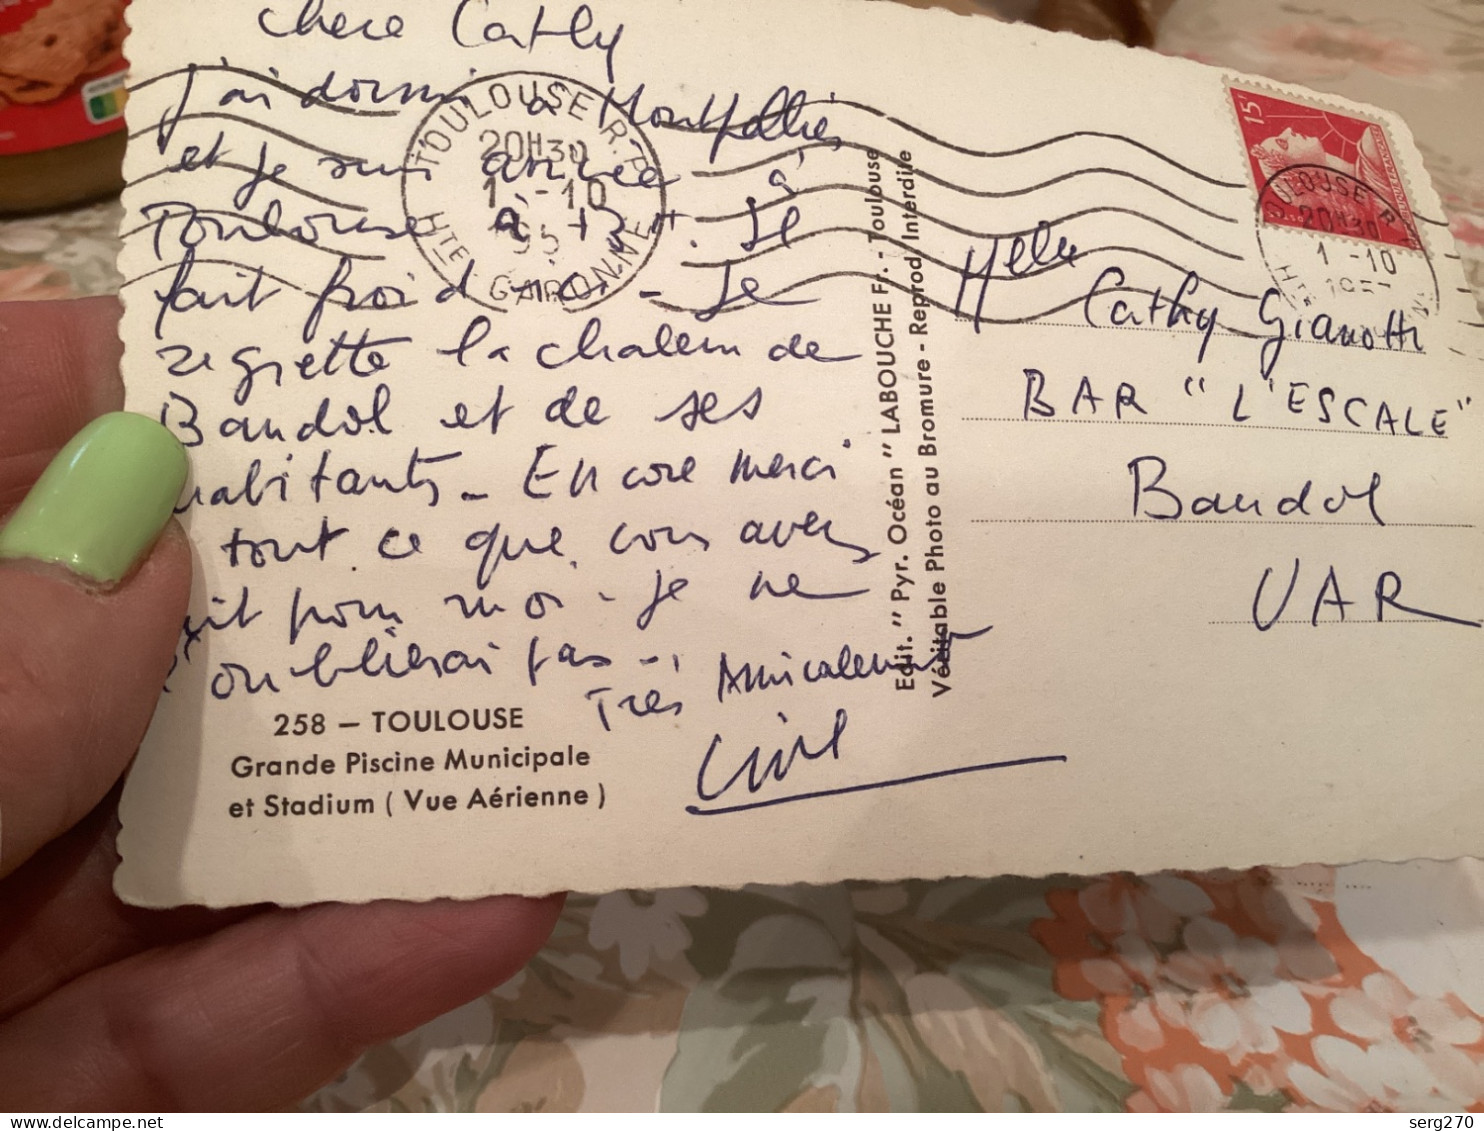 Chere Cathy
j'ai dormi à Montpellier
et je suis arrivée à
Toulouse à 13 H. Il
fait froid ici - Je
regrette la chaleur de
Bandol et de ses
habitants - Encore merci
tout ce que vous avez
fait pour moi - Je ne
l'oublierai pas -
Très Amicalement
TOULOUSE R.P.
20H30
1 -10
HTE GARONNE
258 – TOULOUSE
Grande Piscine Municipale
et Stadium ( Vue Aérienne )
Edit. " Pyr. Océan " LABOUCHE Fr. - Toulouse
Véritable Photo au Bromure - Reprod. Interdite
15F
TOULOUSE R.P.
20H30
1 -10
1957
Melle
Cathy Gianotti
BAR "L'ESCALE"
Bandol
VAR
serg270